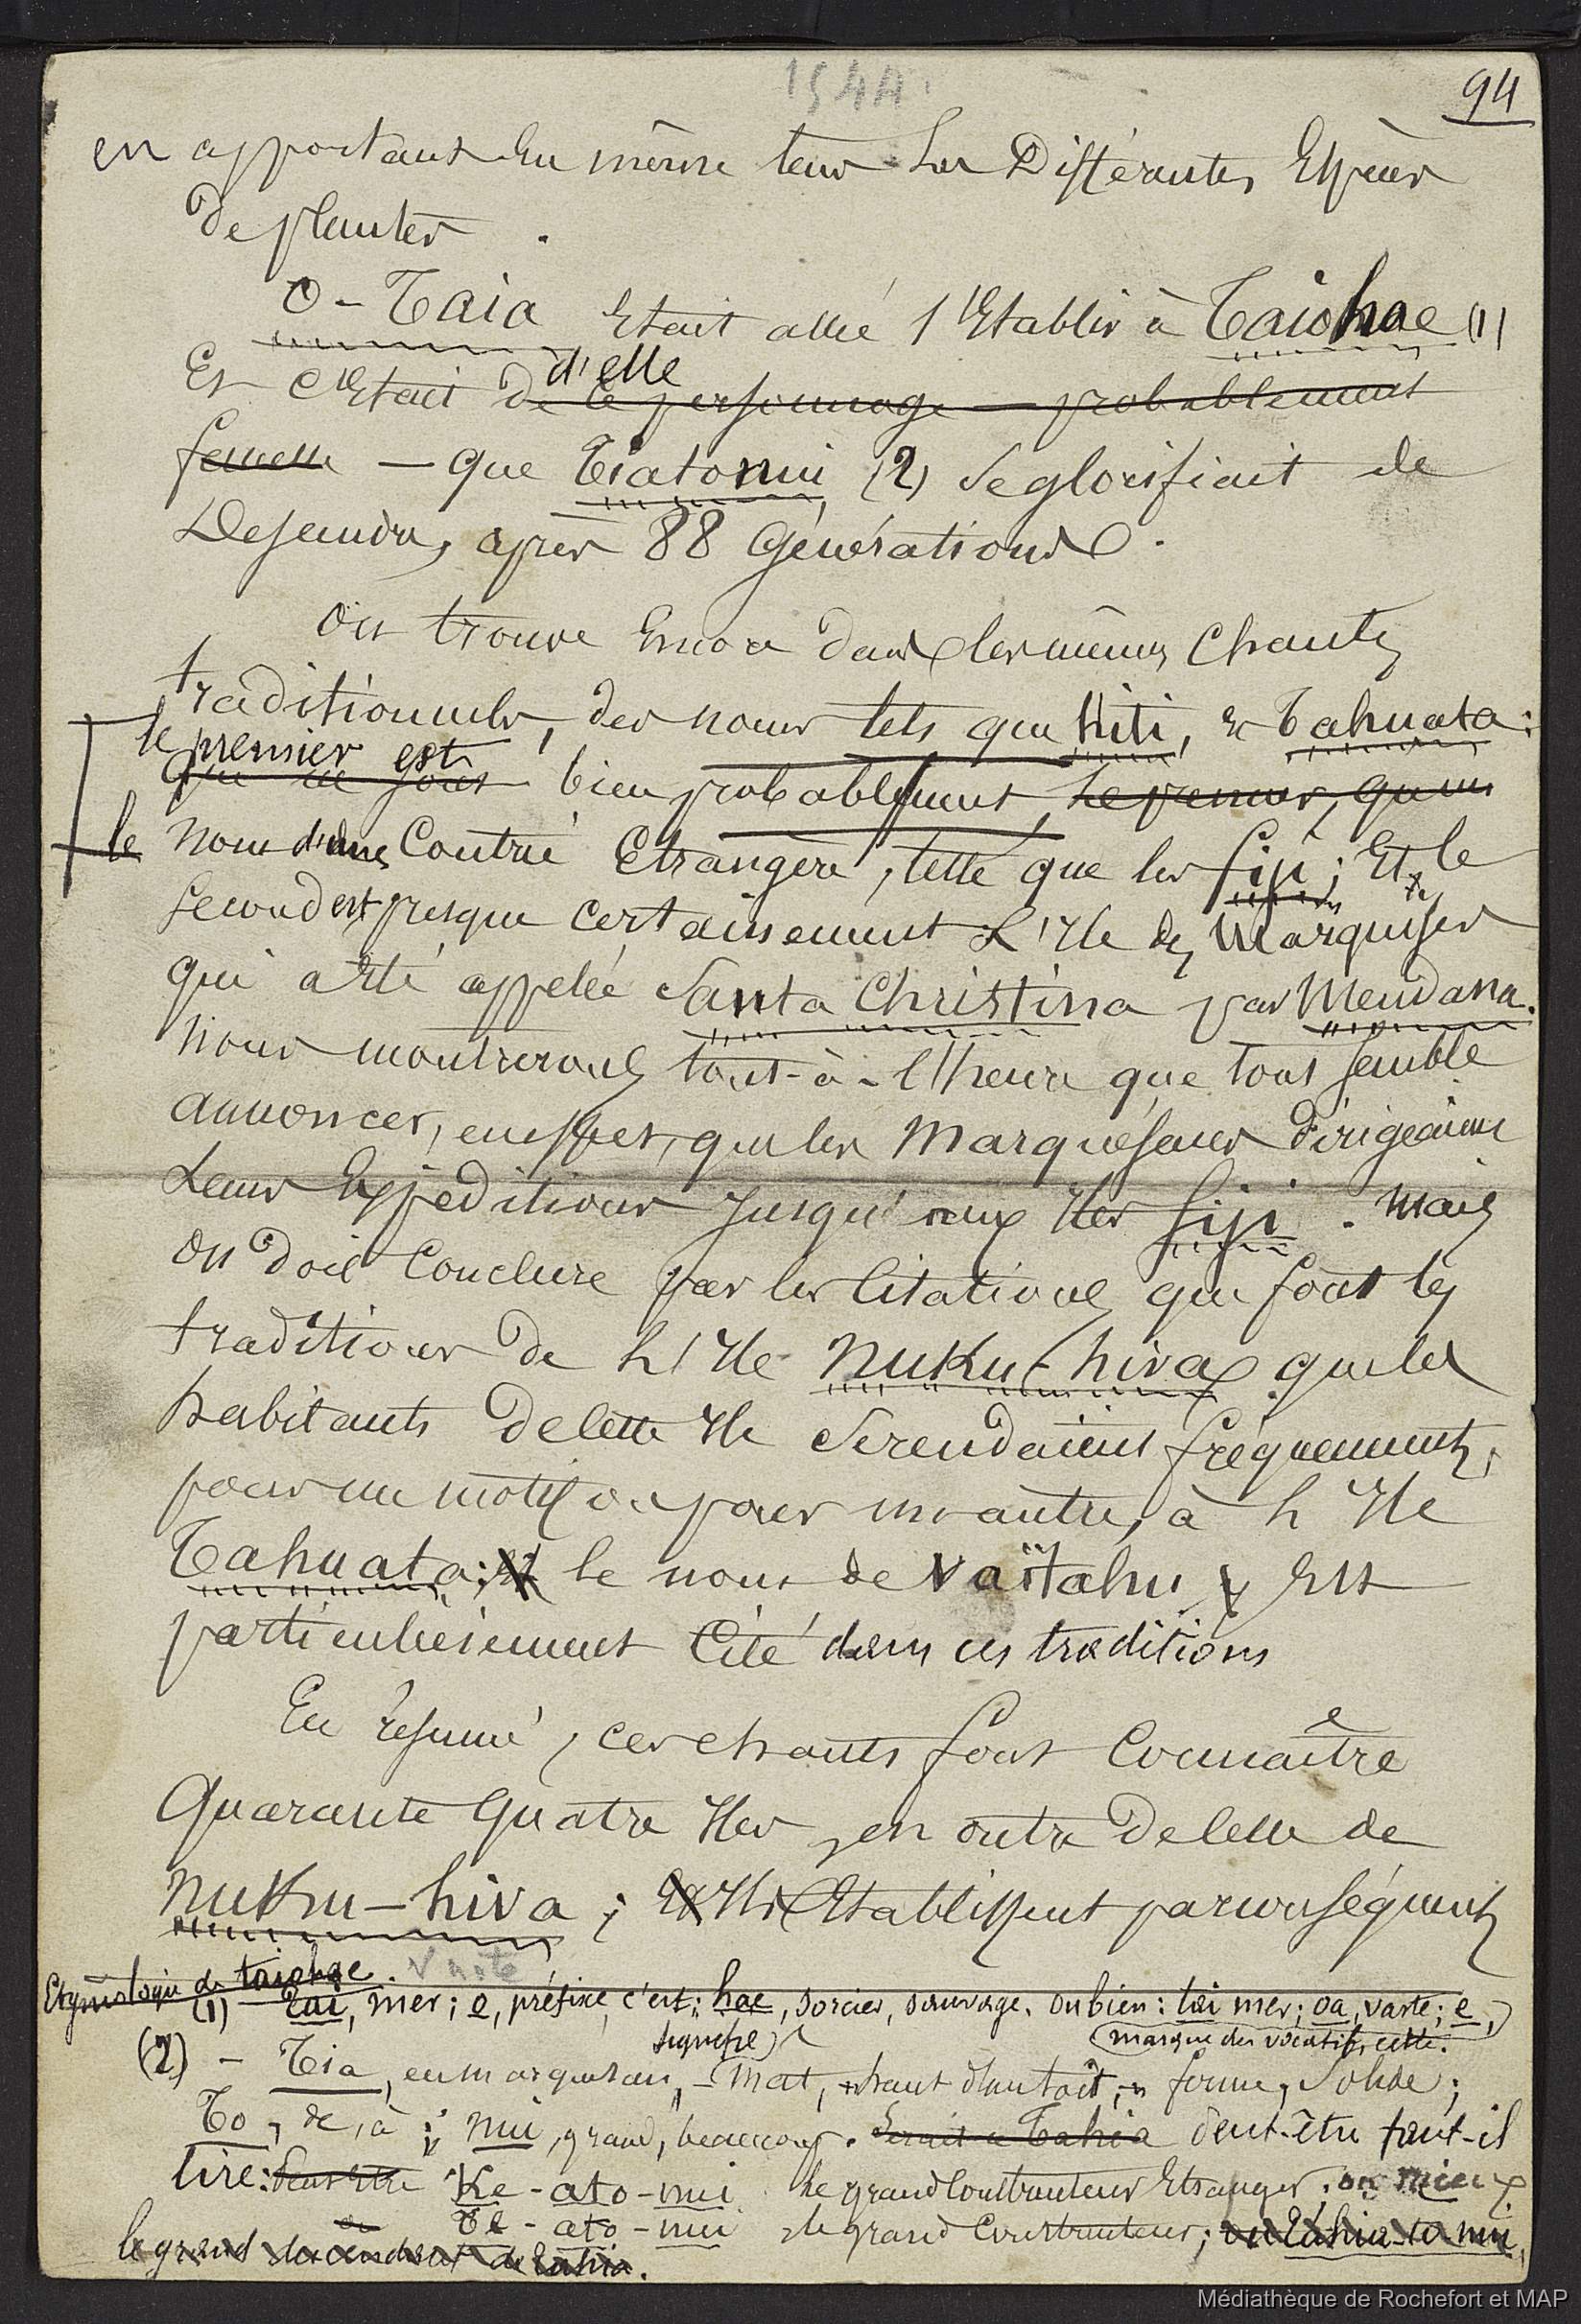 1544.
94
en apportant en même tems les Différentes Espèces
de plantes .
O-Taia Etait allée s'Etablir à Taiohae (1)
d'elle
Et C'Etait de ce personnage — probablement
femelle — que Tiatonui (2) se glorifiait de
Descendre, après 88 Générations .
On trouve Encore dans les mêmes Chants
traditionnels, des noms tels que Hiti, et Tahuata :
le premier est
que ce sont bien probablement, le premier, qu'un
le nom d'une Contrée Etrangère, telle que les fiji ; Et le
second est presque certainement L'Ile des Marquises
qui a été appelée Santa Christina par Mendana.
Nous montrerons tout-à-l'heure que tout semble
annoncer, en effet, que les Marquésans dirigeaient
Leurs Expéditions jusqu'aux Iles fiji . Mais
on doit Conclure par les Citations que font les
traditions de L'Ile Nuku-hiva que les
habitants de cette Ile se rendaient fréquemment,
pour un motif ou pour un autre, à L'Ile
Tahuata ; Et le nom de Vaïtahu y Est
particulièrement Cité dans ces traditions
En résumé, ces chants font Connaître
Quarante Quatre Iles, en outre de celle de
Nuku-hiva ; Et Ils Etablissent par conséquent
Etymologie de taiohae. Vaste
(1) — Tai, mer ; o, préfixe, c'est ; hae, sorcier, sauvage. ou bien : tai mer ; oa, vaste ; e,
signifie marque du vocatif, cette.
(2) — Tia, en marquésan, — mat, — haut d'un toit, — ferme, solide ;
To, de, à ; nui, grand, beaucoup. Serait-ce Tahia Peut-être faut-il
lire : Peut-être Ke-ato-nui le grand Constructeur Etranger ; ou mieux
ou Te-ato-nui le grand Constructeur ; ou Tahia-to-nui,
le grand descendant de Tahia.
Médiathèque de Rochefort et MAP